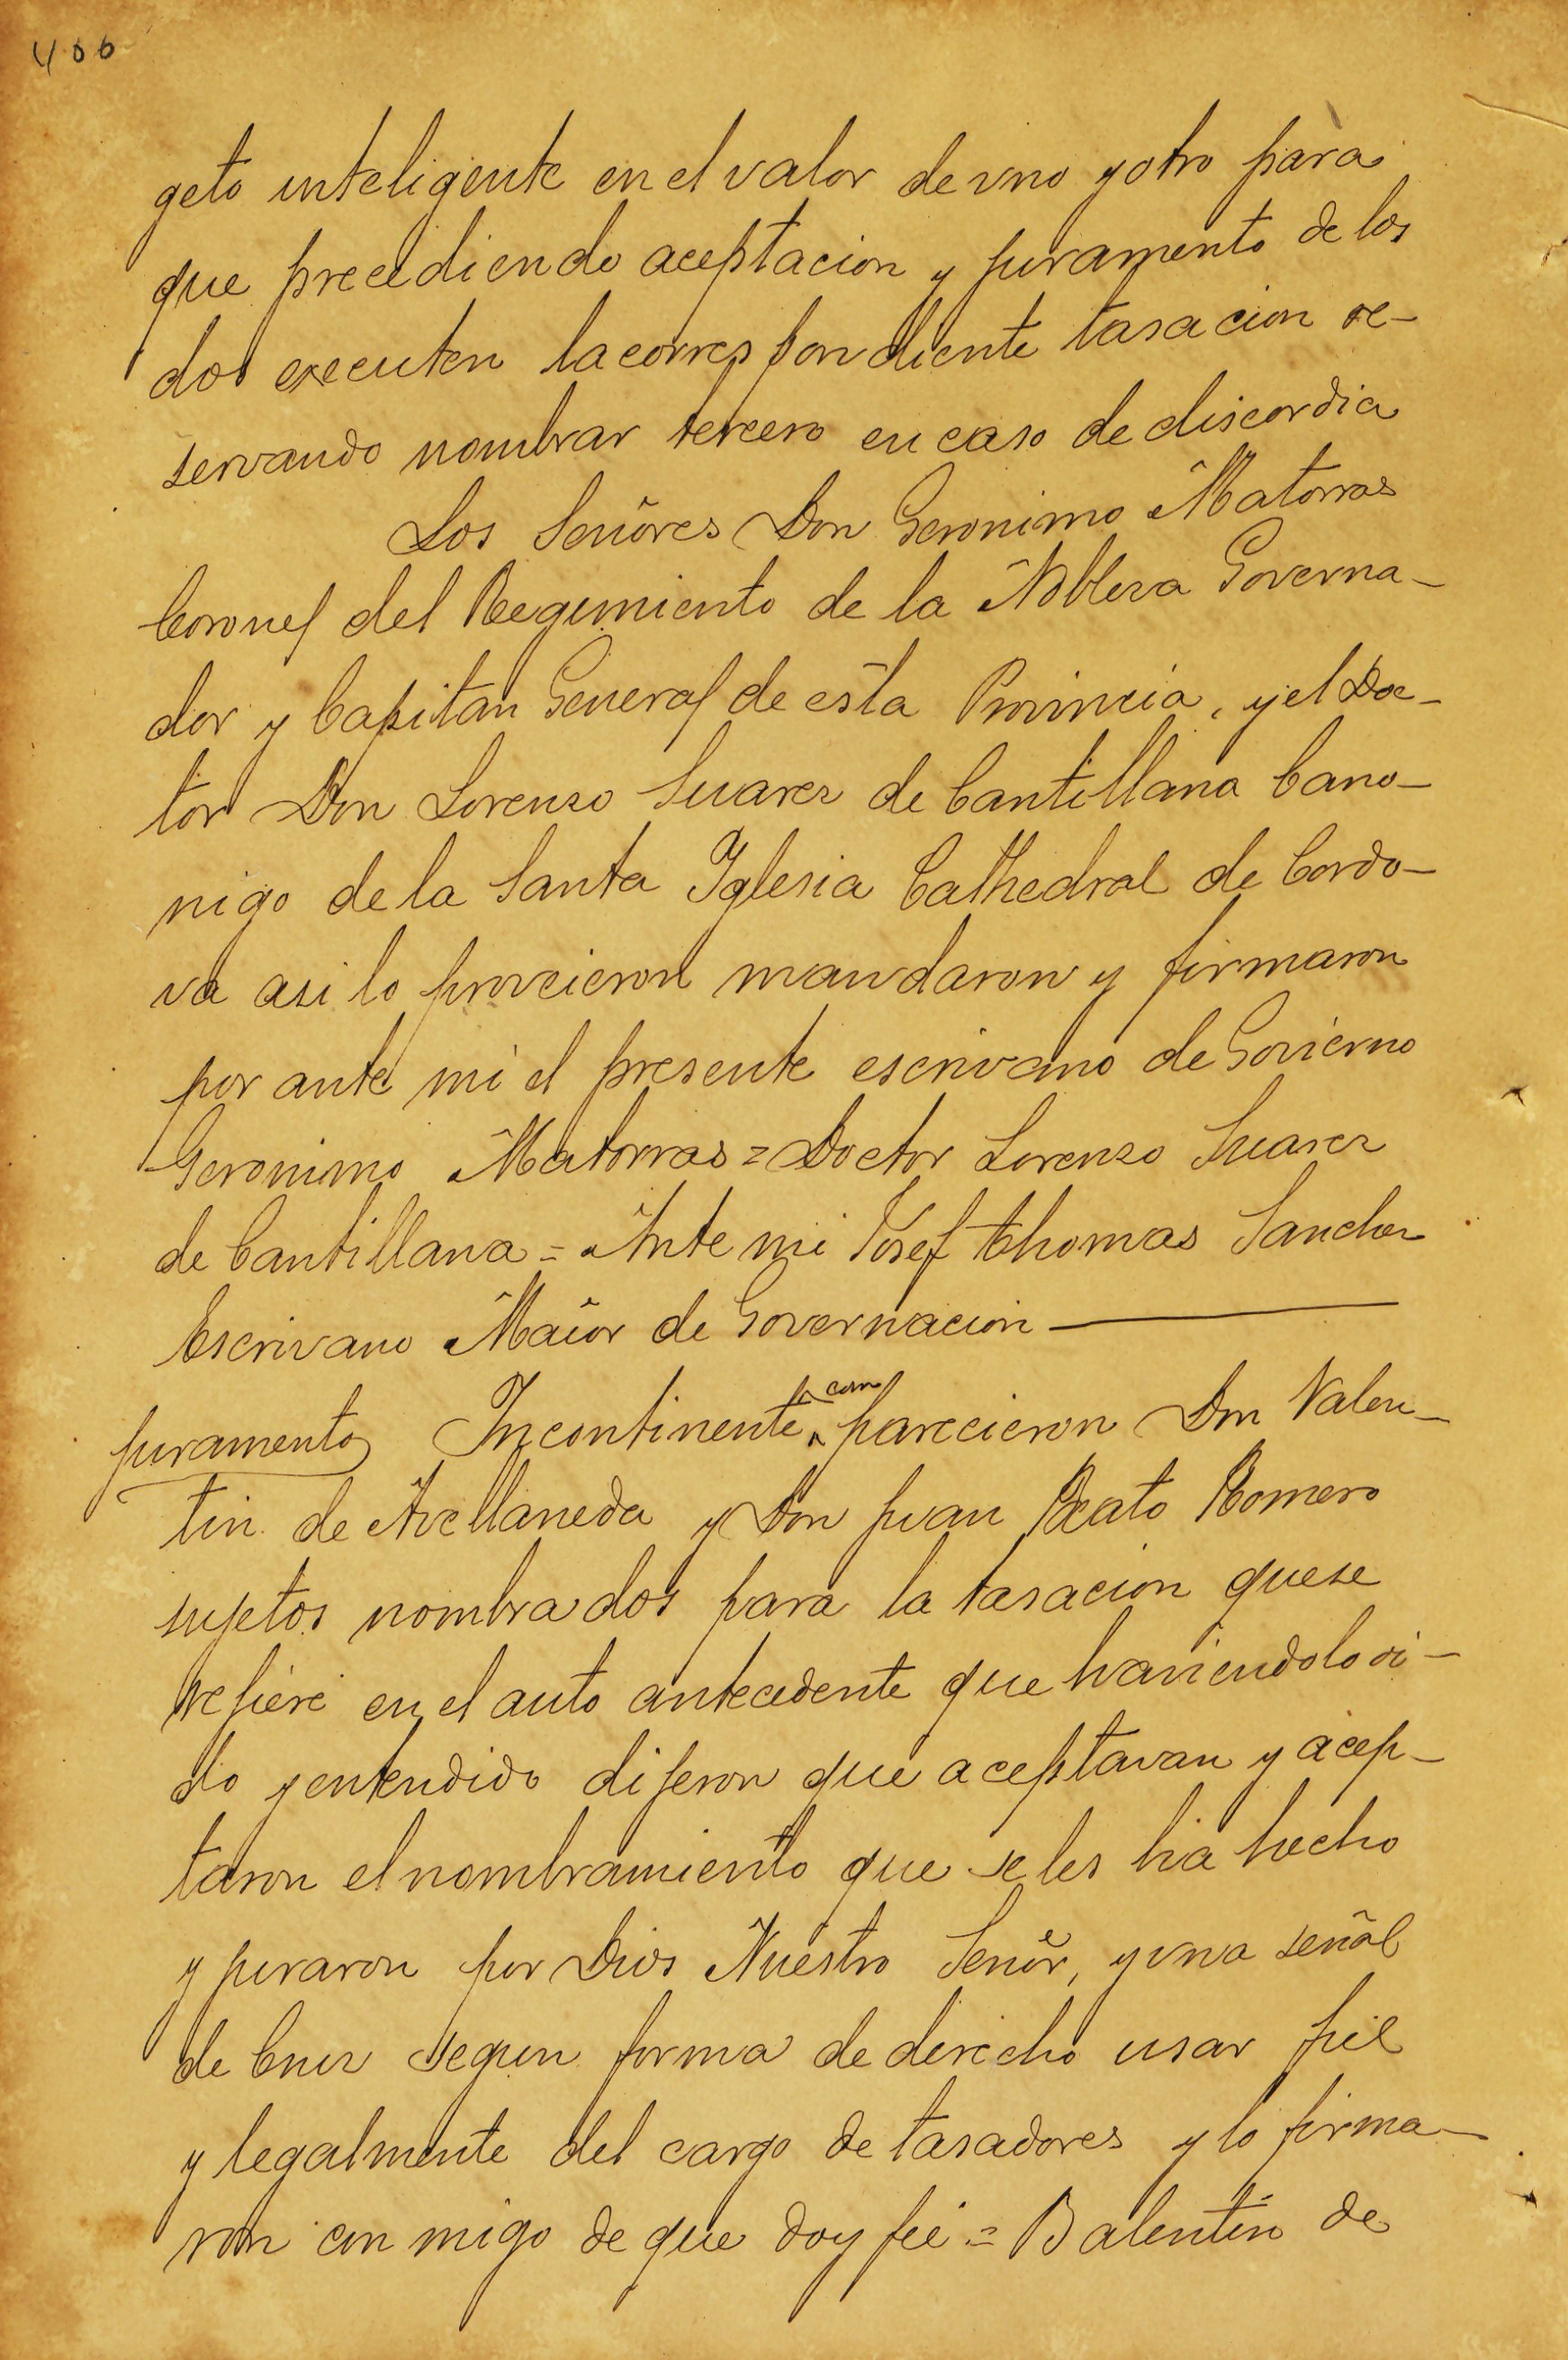 400
geto inteligente en el valor de vno y otro para
que precediendo aceptacion y juramento de los
dos executen la correspondiente tasacion re-
servando nombrar tercero en caso de discordia
Los Señores Don Geronimo Matorras
Coronel del Regimiento de la Nobleza Governa-
dor y Capitan General de esta Provincia, y el Doc-
tor Don Lorenzo Suarez de Cantillana Cano-
nigo de la Santa Iglesia Cathedral de Cordo-
va asi lo proveieron mandaron y firmaron
por ante mi el presente escrivano de Govierno
Geronimo Matorras = Doctor Lorenzo Suarez
de Cantillana = Ante mi Josef Thomas Sanchez
Escrivano Maior de Governacion
juramento Incontinente comparecieron Don Valen-
tin de Avellaneda y Don Juan Beato Romero
sujetos nombrados para la tasacion que se
refiere en el auto antecedente que haviendolo oi-
do y entendido dijeron que aceptavan y acep-
taron el nombramiento que se les ha hecho
y juraron por Dios Nuestro Señor, y una señal
de Cruz segun forma de derecho usar fiel
y legalmente del cargo de tasadores y lo firma-
ron con migo de que doy fee = Balentin de